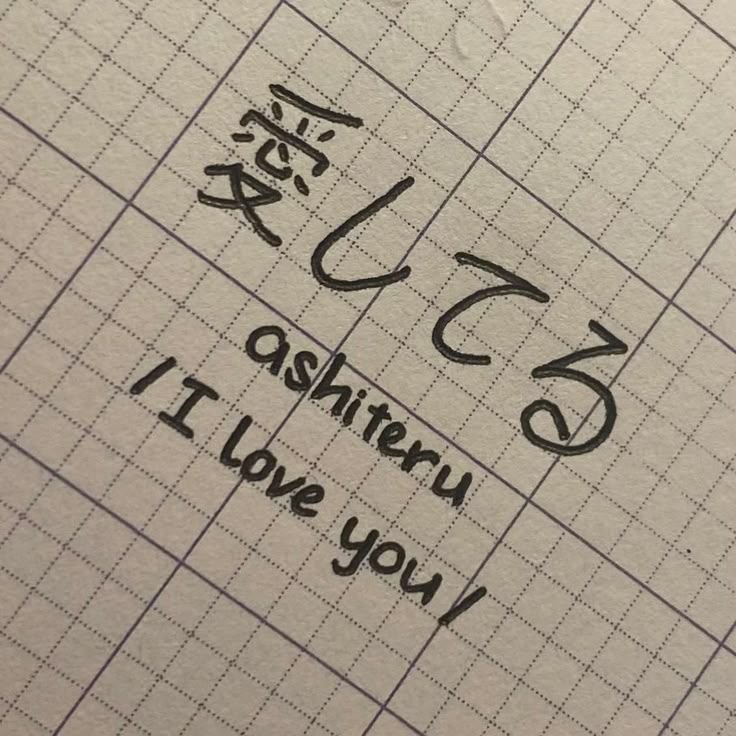 愛してる
ashiteru
/I love you/